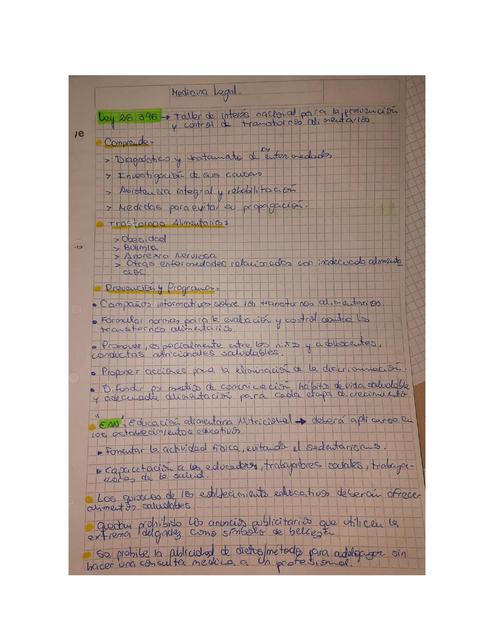 Medicina Legal.
Ley 26.396 → Taller de interés nacional para la prevención
y control de trastornos alimentarios.
Comprende:
> Diagnóstico y tratamiento de enfermedades
> Investigación de sus causas
> Asistencia integral y rehabilitación
> Medidas para evitar su propagación.
Trastornos Alimentarios:
> Obesidad
> Bulimia
> Anorexia Nerviosa
> Otras enfermedades relacionadas con inadecuada alimenta
Prevención y Programa:
• Campañas informativas sobre los trastornos alimentarios.
• Formular normas para la evaluación y control contra los
transtornos alimentarios
• Promover, especialmente entre los niños y adolescentes,
conductas nutricionales saludables.
• Proponer acciones para la eliminación de la discriminación
• Difundir por medio de comunicación hábitos de vida saludable
y adecuada alimentación para cada etapa de crecimiento
Educación alimentaria Nutricional → deberá aplicarse en
los establecimientos educativos
Fomentar la actividad física, evitando el sedentarismo.
capacitación a los educadores, trabajadores sociales, trabaja-
dores de la salud.
Los quioscos de los establecimiento educativos deberán ofrecer
alimentos saludables
Quedan prohibido los anuncios publicitarios que utilicen la
extrema delgadez como símbolo de belleza
Se prohibe la publicidad de dietas/metodos para adelgazar sin
hacer una consulta medica a un profesional.